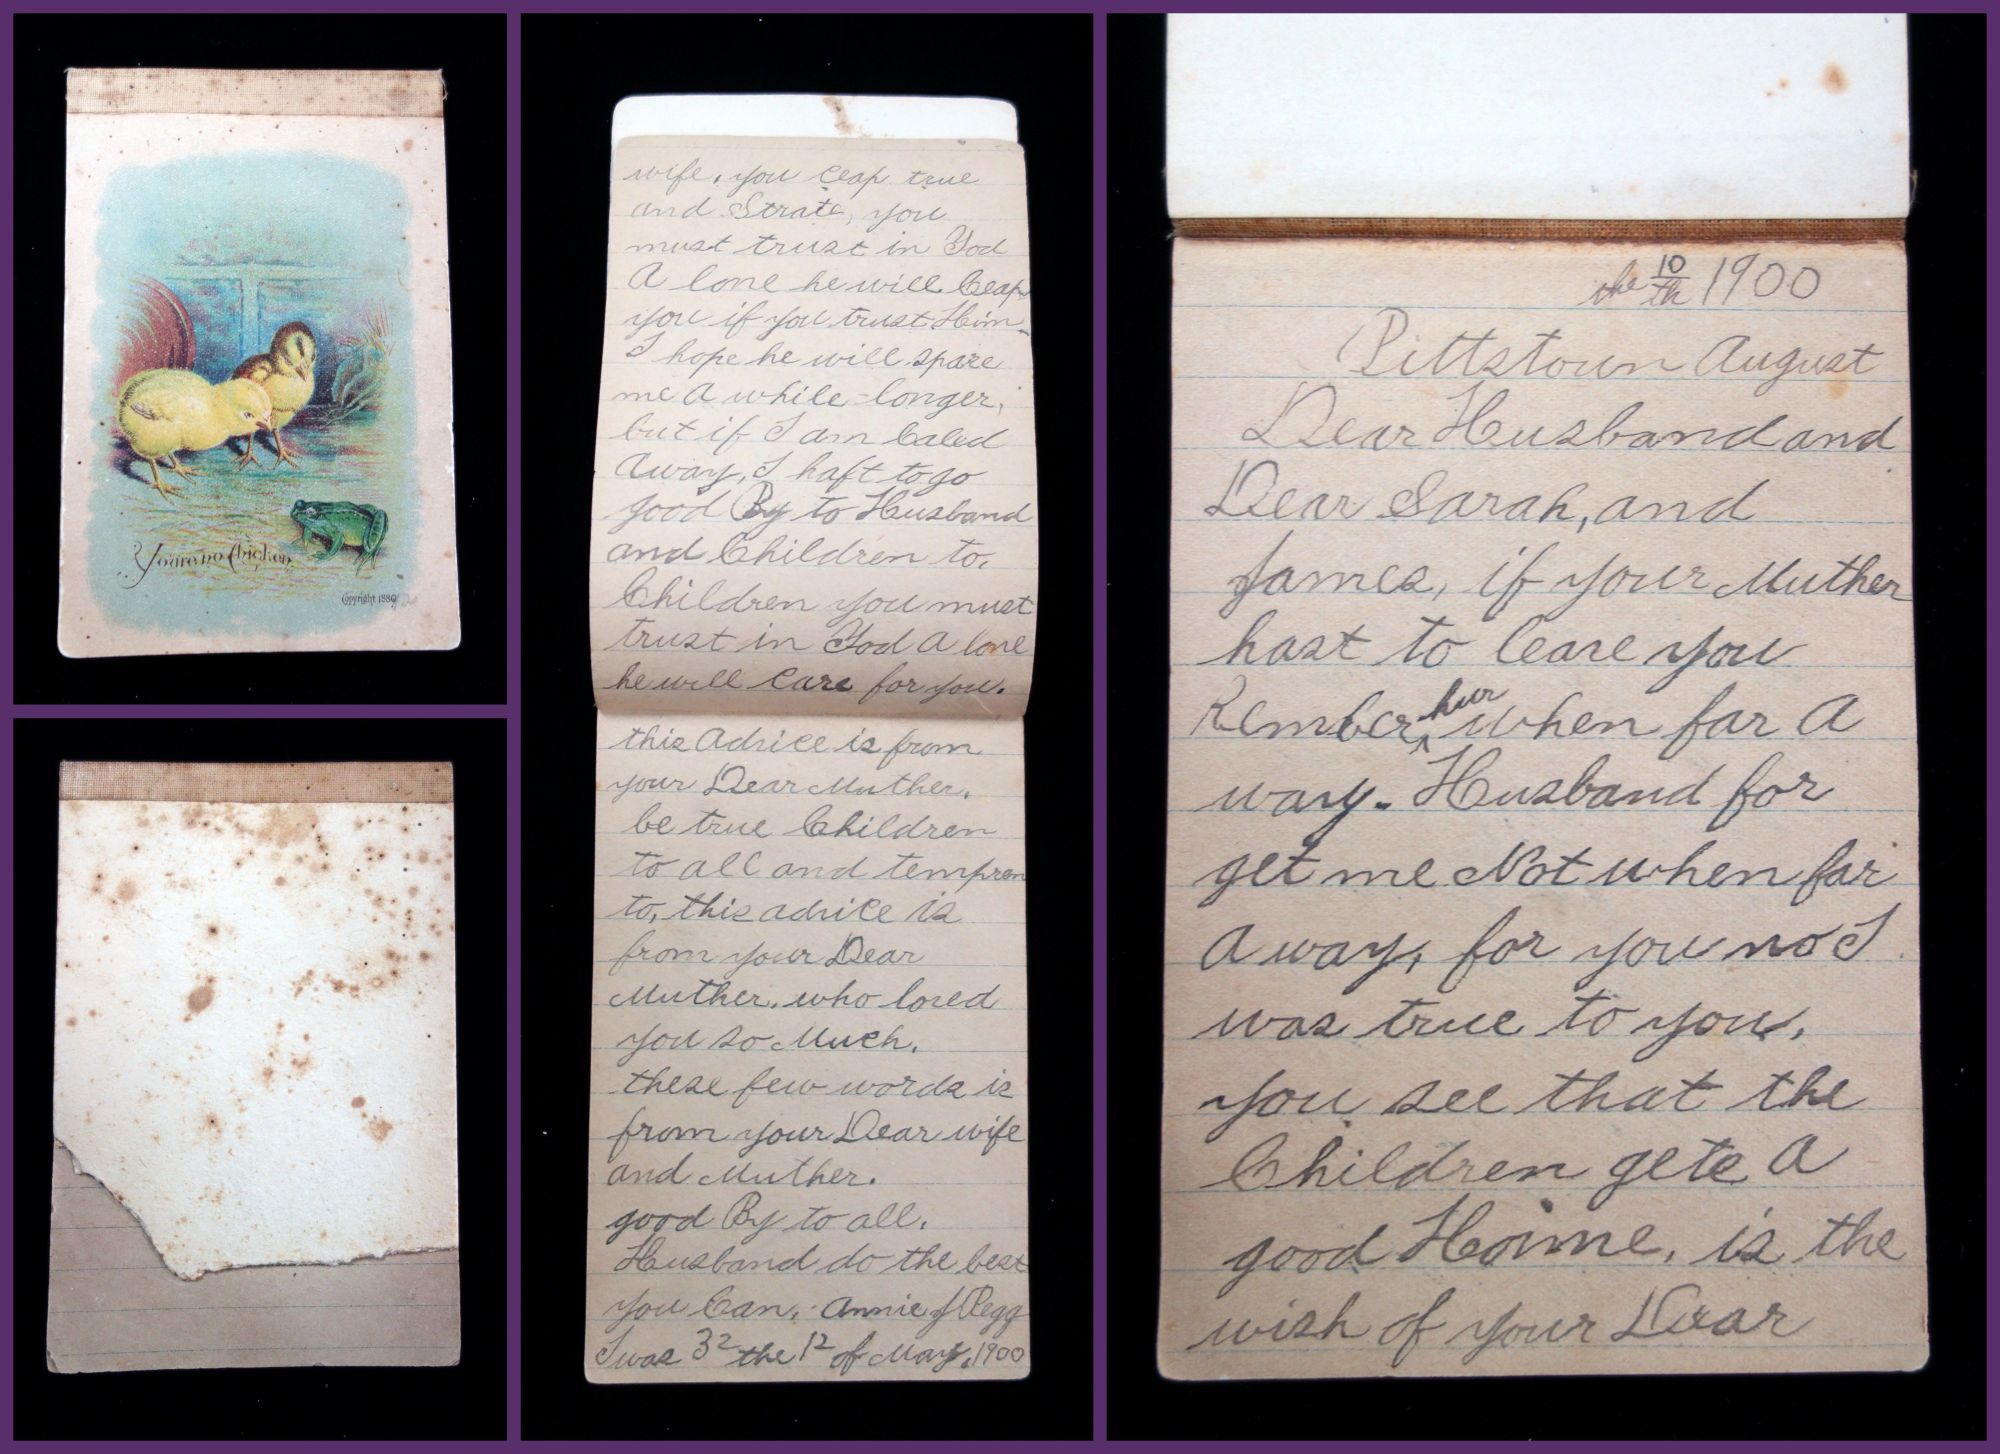 You're no Chicken
Copyright 1880
the 10th 1900
Pittstown August
Dear Husband and
Dear Sarah, and
James, if your Muther
hast to leave you
Rember hur when far A
way. Husband for
get me Not when far
A way, for you no I
was true to you,
you see that the
Children gete A
good Home, is the
wish of your Dear
wife, you Ceap true
and Strate, you
must trust in God
A lone he will Ceap
you if you trust Him.
I hope he will spare
me A while longer,
but if I am Caled
Away, I haft to go
good By to Husband
and Children to.
Children you must
trust in God A lone
he will Care for you.
this Advice is from
your Dear Muther.
be true Children
to all and tempren
to, this advice is
from your Dear
Muther. who loved
you so Much.
these few words is
from your Dear wife
and Muther.
good By to all.
Husband do the best
you Can, Annie J Pegg
I was 32 the 12 of May, 1900